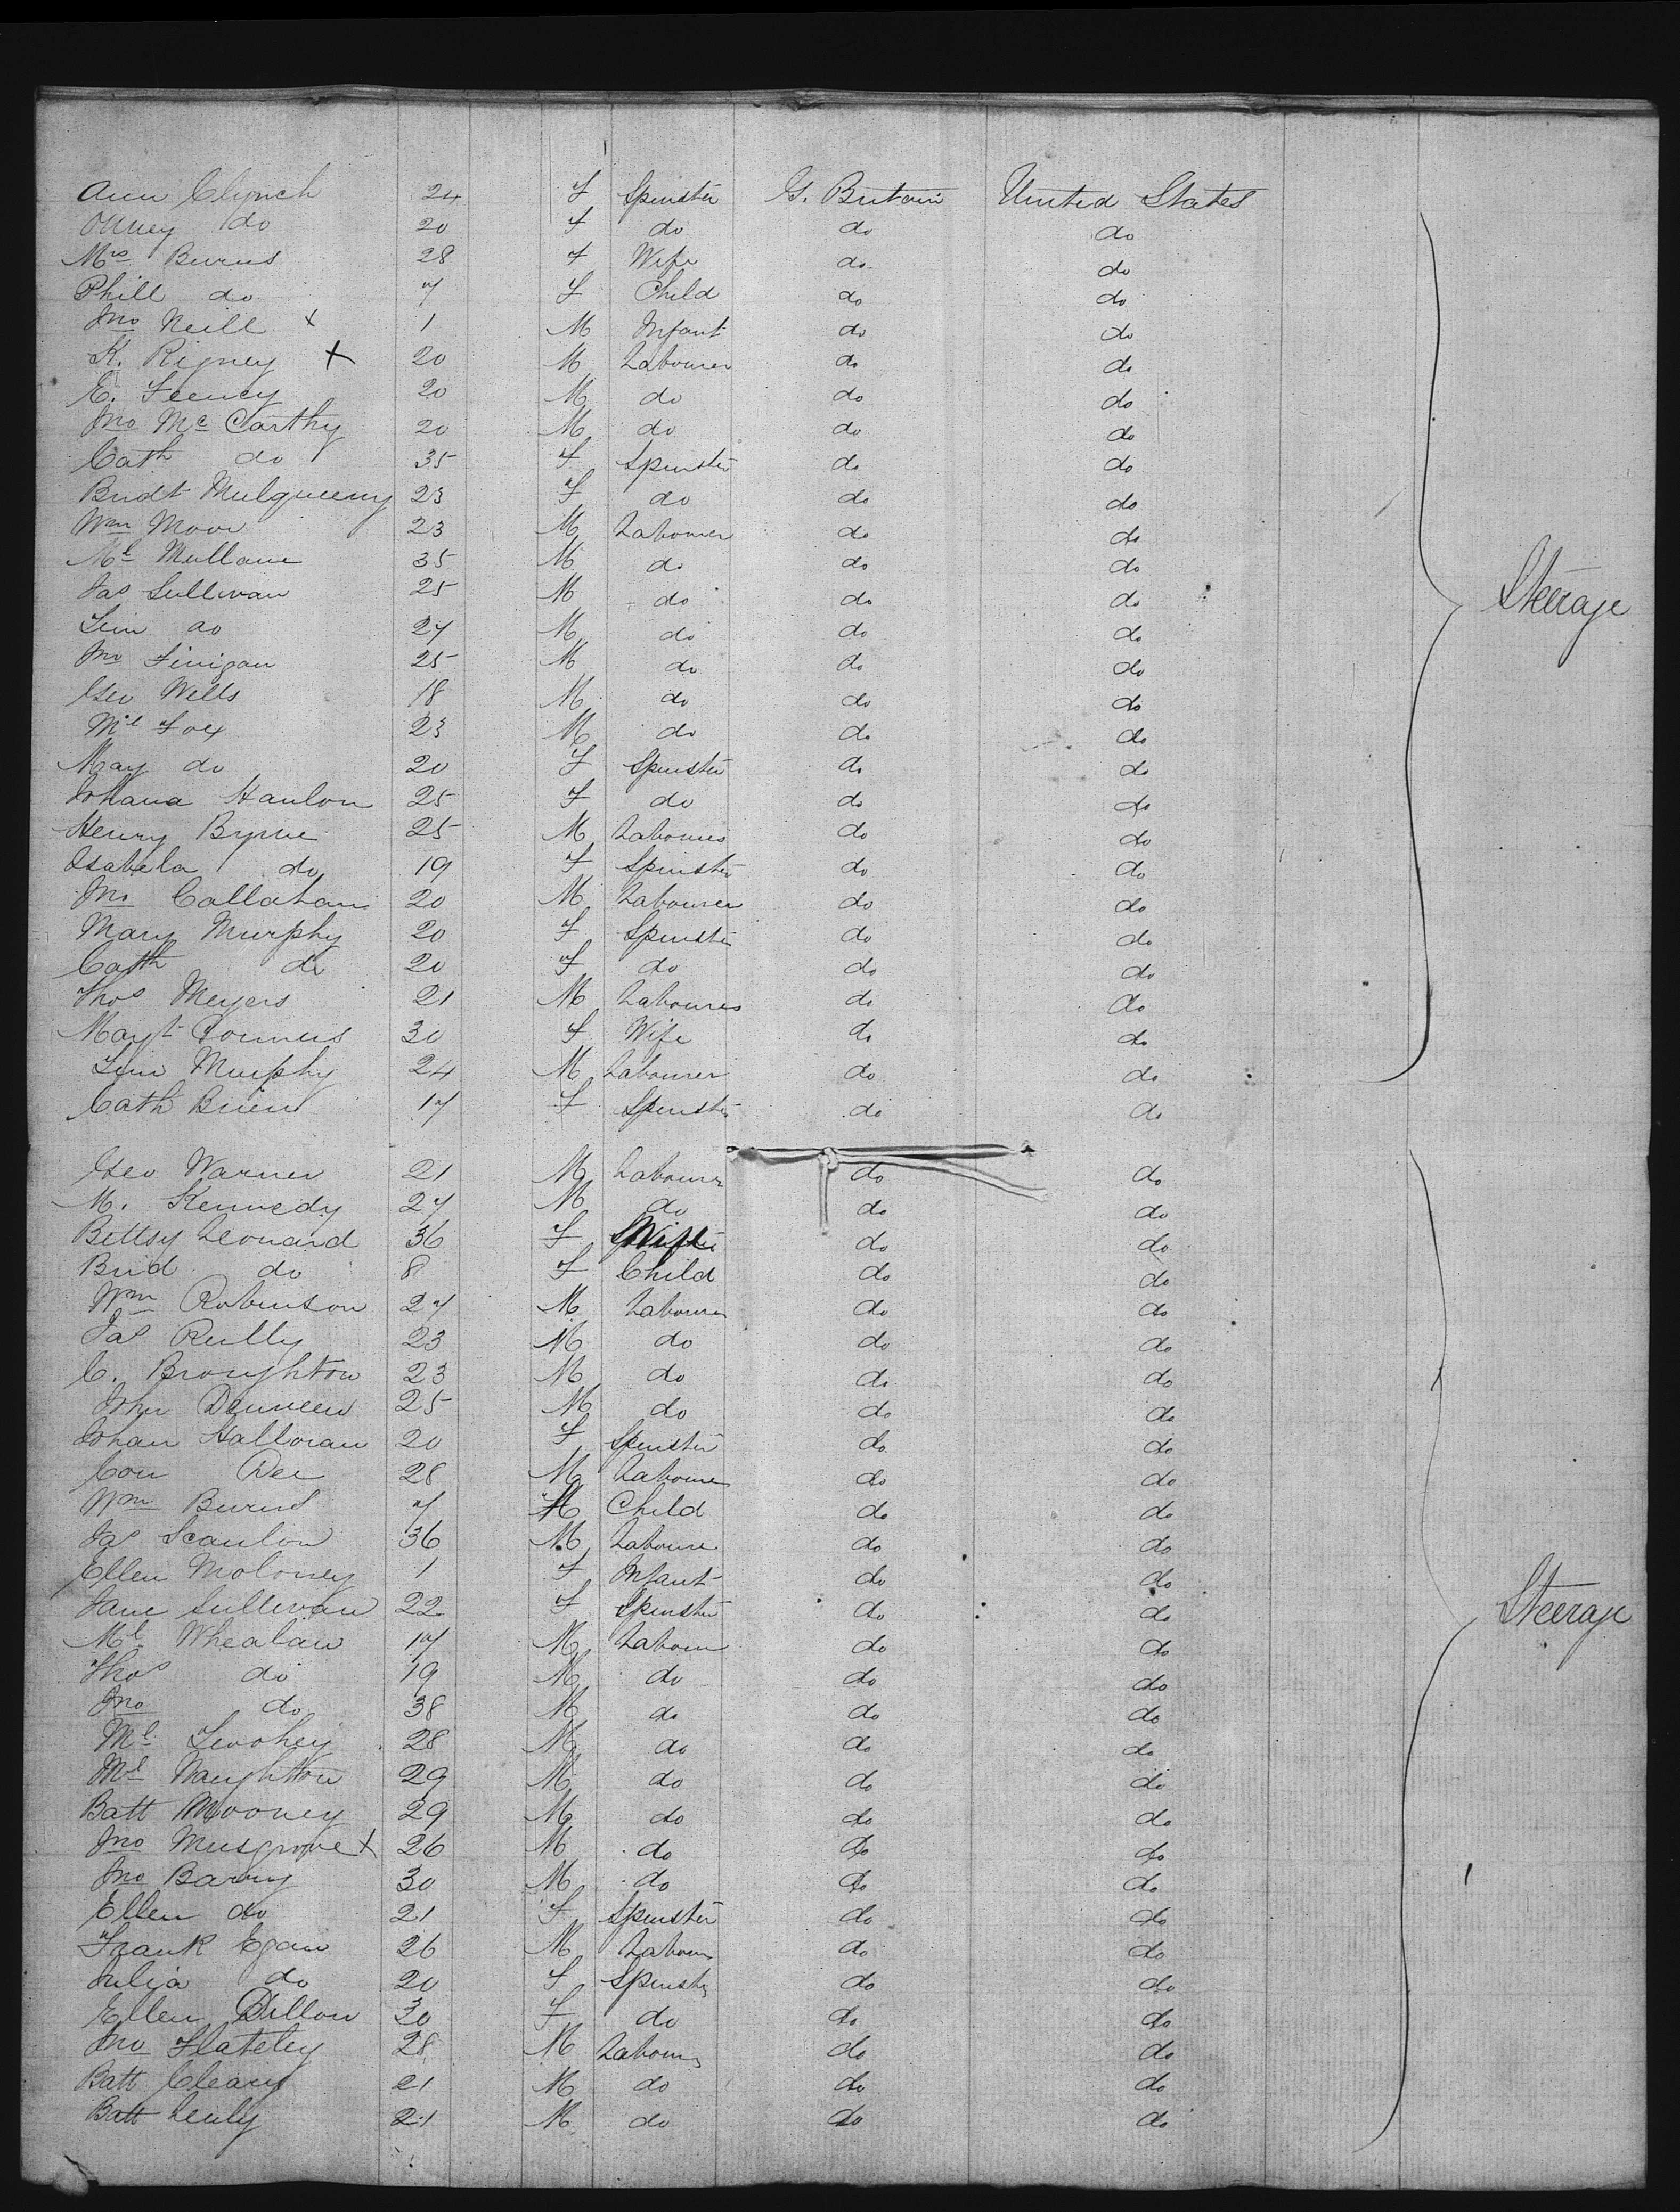 Ann Clynch 24 F Spinster G. Britain United States
Onney do 20 F do do do
Mrs Burns 28 F Wife do do
Phill do 7 F Child do do
Jno Neill x 1 M Infant do do
K. Rigney x 20 M Labourer do do
E. Feeney 20 M do do do
Jno McCarthy 20 M do do do
Cath do 35 F Spinster do do
Bridt Mulqueeny 23 F do do do
Wm Moor 23 M Labourer do do
Ml Mullane 35 M do do do
Jas Sullivan 25 M do do do Steerage
Tim do 27 M do do do
Jno Finigan 25 M do do do
Geo Wells 18 M do do do
Ml Fox 23 M do do do
May do 20 F Spinster do do
Johana Hanlon 25 F do do do
Henry Byrne 25 M Labourer do do
Isabela do 19 F Spinster do do
Jno Callahan 20 M Labourer do do
Mary Murphy 20 F Spinster do do
Cath do 20 F do do do
Thos Meyers 21 M Labourer do do
Mayt Conners 30 F Wife do do
Tim Murphy 24 M Labourer do do
Cath Brien 17 F Spinster do do
Geo Warner 21 M Labourer do do
M. Kennedy 27 M do do do
Bettsy Leonard 36 F Wife do do
Brid do 8 F Child do do
Wm Robinson 27 M Labourer do do
Jas Reilly 23 M do do do
C. Broughton 23 M do do do
John Denneen 25 M do do do
Johan Halloran 20 F Spinster do do
Con Dee 28 M Labourer do do
Wm Burns 7 M Child do do
Jas Scanlon 36 M Labourer do do
Ellen Moloney 1 F Infant do do
Jane Sullivan 22 F Spinster do do Steerage
Ml Whealan 17 M Labourer do do
Thos do 19 M do do do
Jno do 38 M do do do
Ml 28 M do do do
Ml Naughton 29 M do do do
Batt Mooney 29 M do do do
Jno Musgrove x 26 M do do do
Jno Barry 30 M do do do
Ellen do 21 F Spinster do do
Frank Egan 26 M Labourer do do
Julia do 20 F Spinster do do
Ellen Dillon 30 F do do do
Jno Flateley 28 M Labourer do do
Batt Cleary 21 M do do do
Batt 21 M do do do